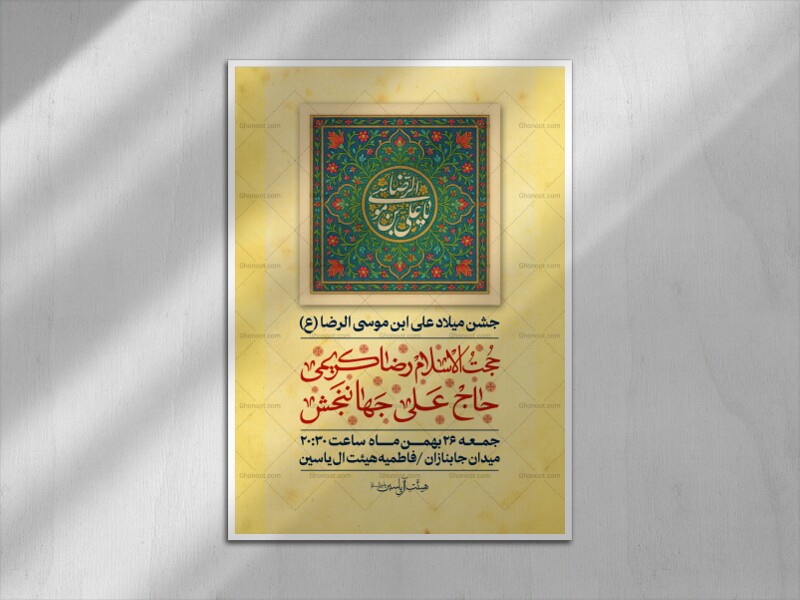 یا علی بن موسی الرضا
جشن میلاد علی ابن موسی الرضا (ع)
حجت الاسلام رضا کریمی
حاج علی جهانبخش
جمعه ۲۶ بهمن ماه ساعت ۲۰:۳۰
میدان جابنازان / فاطمیه هیئت ال یاسین
هیئت آل یاسین
Ghonoot.com